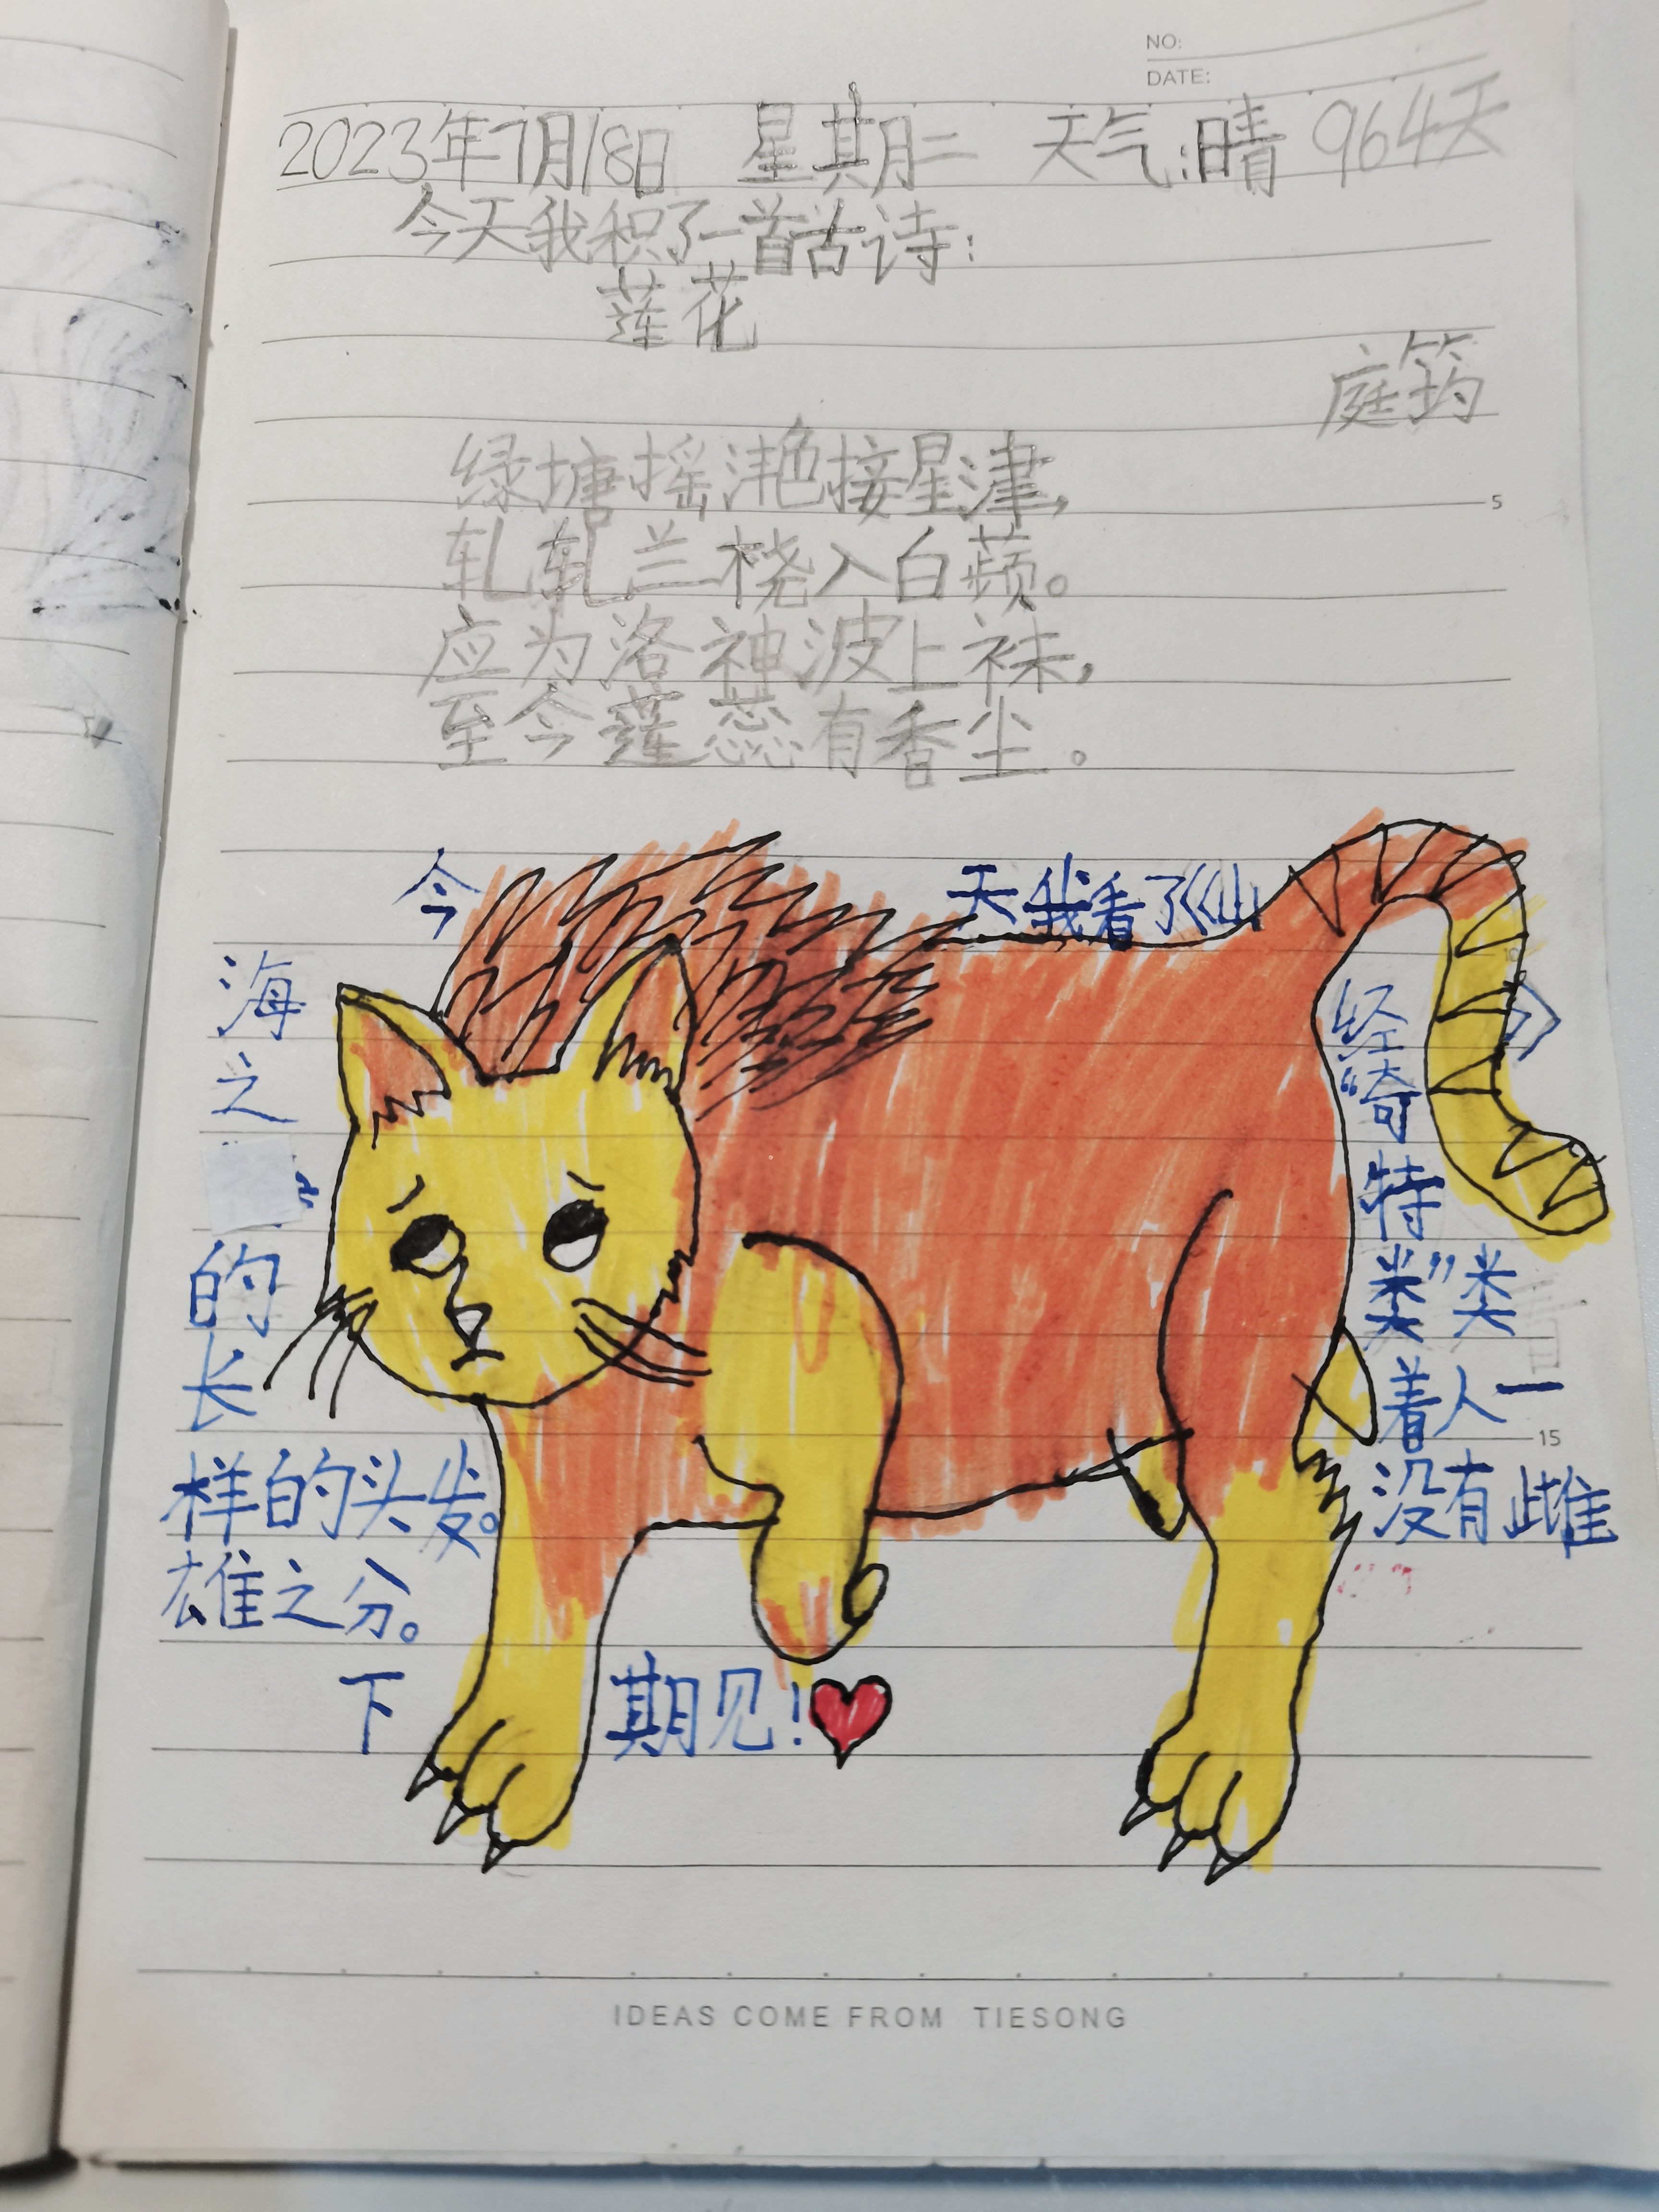 NO:
DATE:
2023年7月18日 星期二 天气:晴 964天
今天我积了一首古诗:
莲花
庭筠
绿塘摇滟接星津,
5
轧轧兰桡入白蘋。
应为洛神波上袜,
至今莲蕊有香尘。
今天我看了《山
10
海经》
之“奇
”特
的类”类
长着人一
15
样的头发。没有雌
雄之分。
下期见!
IDEAS COME FROM TIESONG